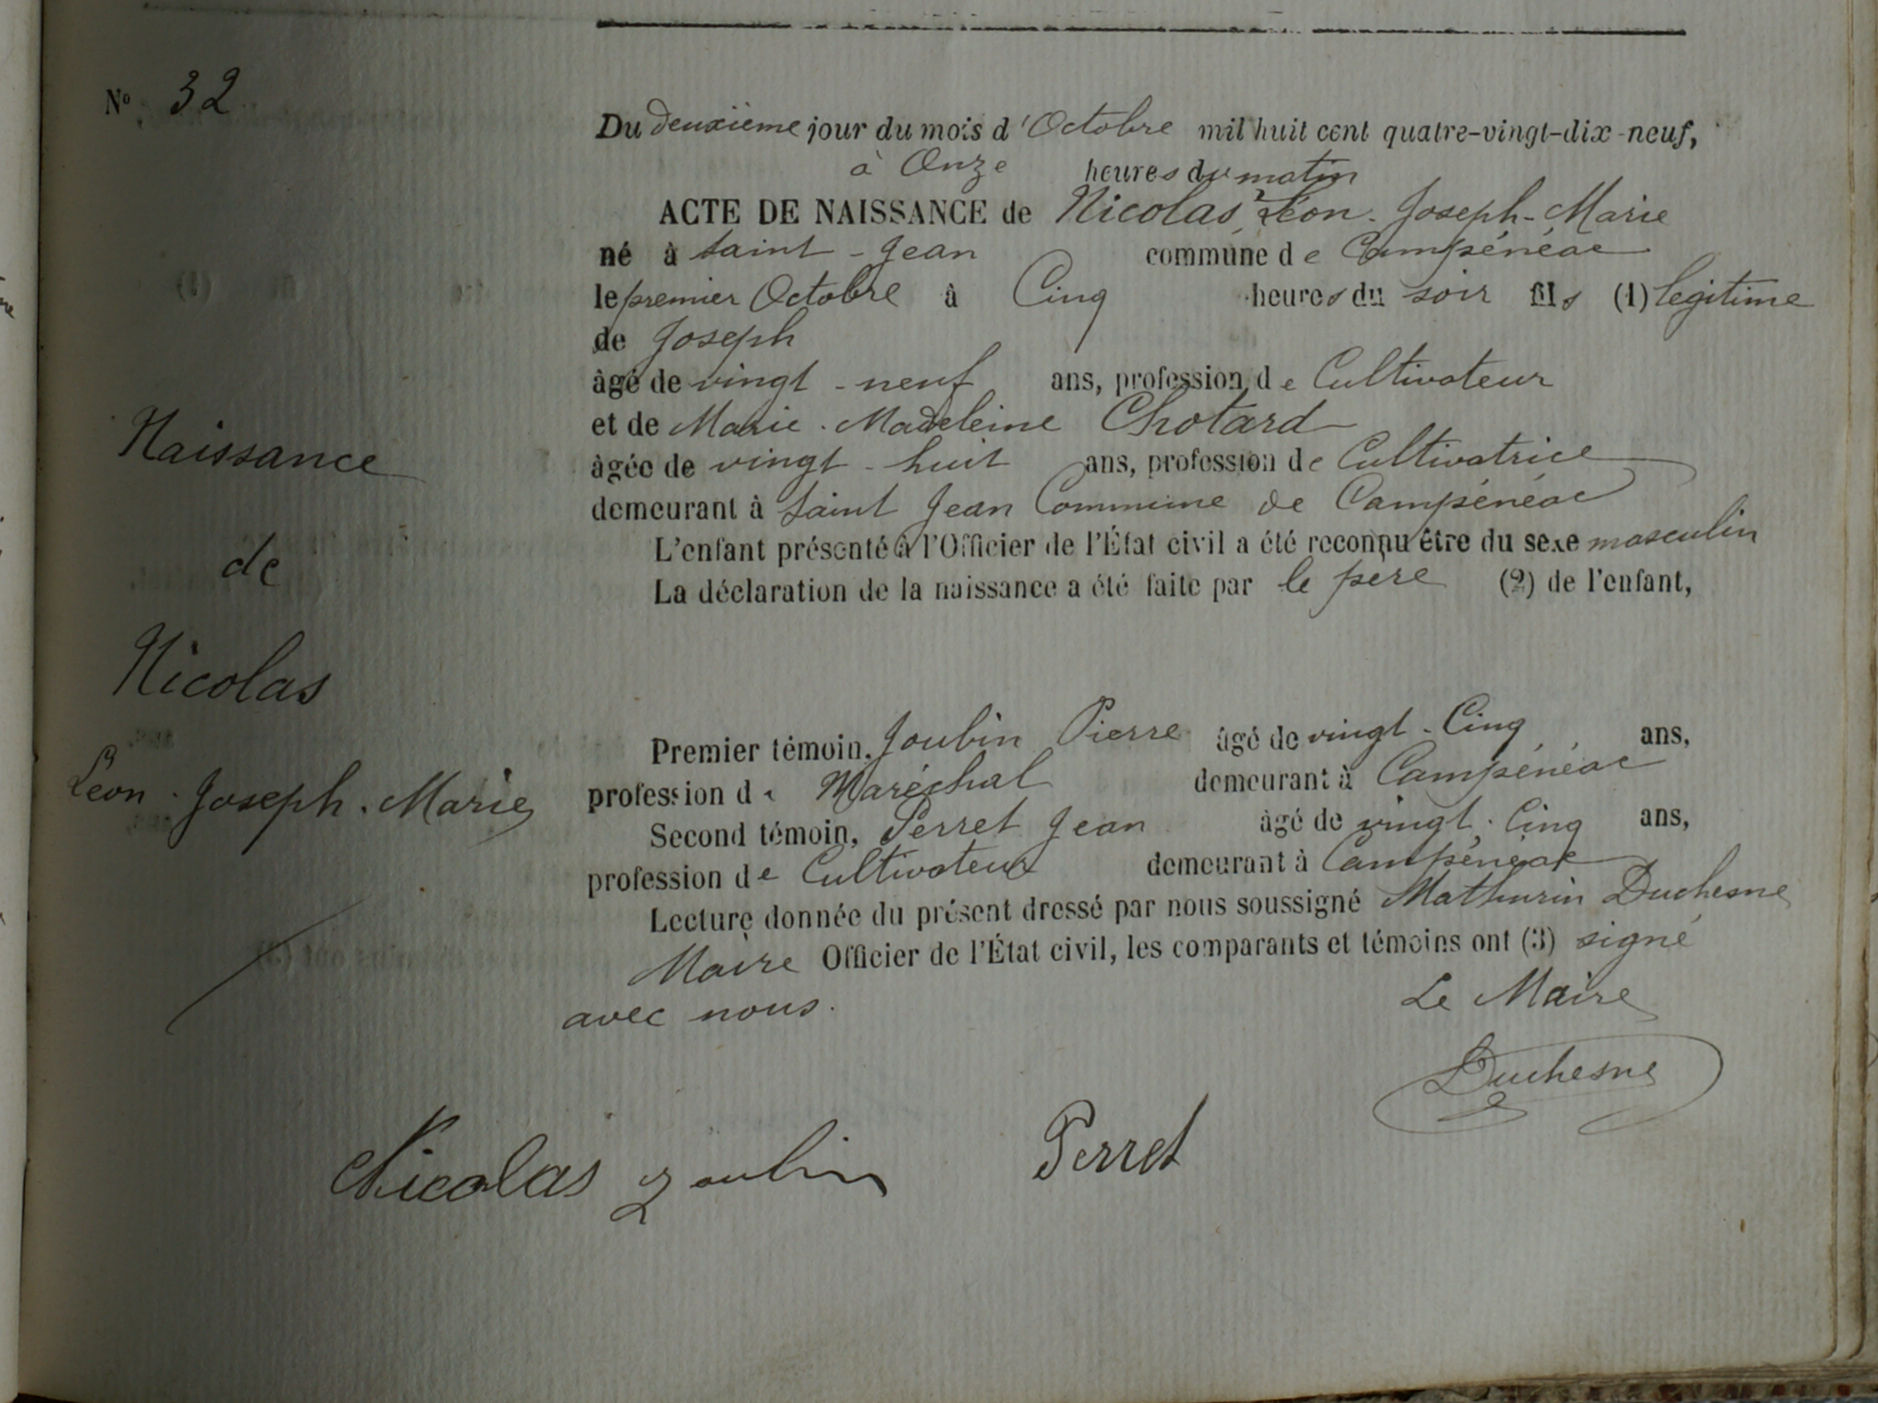 N° 32
Du deuxième jour du mois d'Octobre mil huit cent quatre-vingt-dix-neuf,
à Onze heures du matin
ACTE DE NAISSANCE de Nicolas, Léon-Joseph-Marie
né à Saint-Jean commune de Campénéac
le premier Octobre à Cinq heures du soir fils (1) légitime
de Joseph
âgé de vingt-neuf ans, profession de Cultivateur
et de Marie-Madeleine Chotard
âgée de vingt-huit ans, profession de Cultivatrice
demeurant à Saint Jean Commune de Campénéac
L'enfant présenté à l'Officier de l'État civil a été reconnu être du sexe masculin
La déclaration de la naissance a été faite par le père (2) de l'enfant,
Naissance
de
Nicolas
Léon-Joseph-Marie
Premier témoin, Joubin Pierre âgé de vingt-Cinq ans,
profession de Maréchal demeurant à Campénéac
Second témoin, Perret Jean âgé de vingt-Cinq ans,
profession de Cultivateur demeurant à Campénéac
Lecture donnée du présent dressé par nous soussigné Mathurin Duchesne
Maire Officier de l'État civil, les comparants et témoins ont (3) signé
avec nous.
Le Maire
Duchesne
Nicolas Joubin Perret